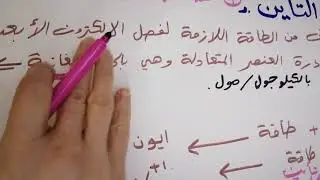 التأين
من الطاقة اللازمة لفصل الإلكترون الأبعد
ذرة العنصر المتعادلة وهي
بالكيلوجول/مول
+ طاقة ← ايون
طاقة
+1